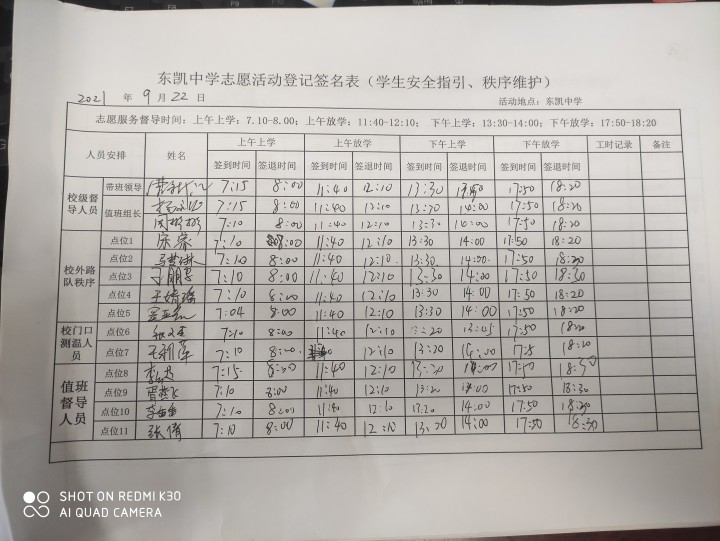 东凯中学志愿活动登记签名表（学生安全指引、秩序维护）
2021 年 9 月 22 日 活动地点：东凯中学
志愿服务督导时间：7.10-8.00；上午放学：11:40-12:10； 下午上学：13:30-14:00；下午放学：17:50-18:20
人员安排 姓名 上午上学 上午放学 下午上学 下午放学 工时记录 备注
签到时间 签退时间 签到时间 签退时间 签到时间 签退时间 签到时间 签退时间
校级督导人员 带班领导 7:15 8:00 11:40 12:10 13:30 17:50 18:20
值班组长 7:15 8:00 11:40 12:10 14:00 17:50 18:20
7:10 8:00 11:40 12:10 13:30 14:00 17:50 18:20
校外路队秩序 点位1 7:10 8:00 11:40 12:10 13:30 14:00 17:50 18:20
点位2 7:10 8:00 11:40 12:10 13:30 14:00 17:50
点位3 7:10 8:00 11:40 12:10 13:30 14:00 17:50 18:30
点位4 7:10 8:00 11:40 12:10 13:30 14:00 17:50 18:20
点位5 7:04 8:00 11:40 12:10 13:30 14:00 17:50 18:20
校门口测温人员 点位6 7:10 8:00 11:40 12:10 17:50 18:20
点位7 7:10 8:00 12:10 14:00 18:20
值班督导人员 点位8 7:15 8:00 11:40 12:10 14:00 18:30
点位9 7:10 8:00 11:40 12:10 14:00 17:50 18:30
点位10 7:10 8:00 11:40 12:10 14:00 17:50
点位11 张倩 7:10 8:00 11:40 12:10 14:00 17:50 18:30
SHOT ON REDMI K30
AI QUAD CAMERA